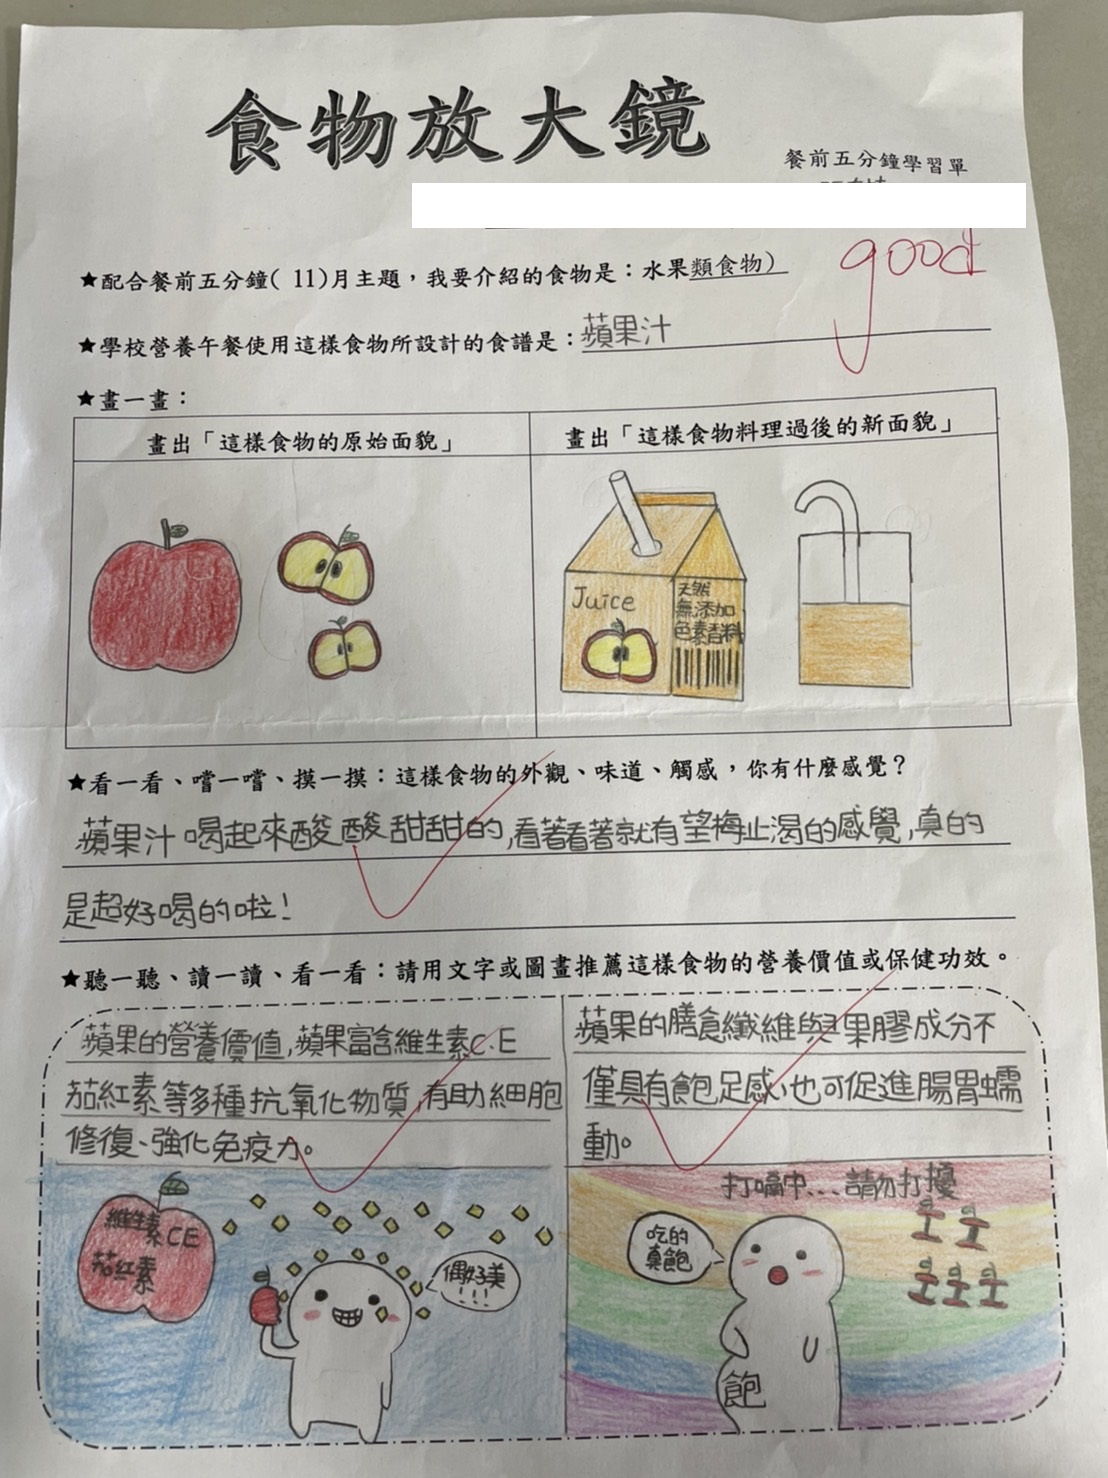 食物放大鏡
餐前五分鐘學習單
good
★配合餐前五分鐘( 11)月主題，我要介紹的食物是：水果類食物)
★學校營養午餐使用這樣食物所設計的食譜是：蘋果汁
★畫一畫：
畫出「這樣食物的原始面貌」
畫出「這樣食物料理過後的新面貌」
Juice
天然
無添加
色素香料
★看一看、嚐一嚐、摸一摸：這樣食物的外觀、味道、觸感，你有什麼感覺？
蘋果汁喝起來酸酸甜甜的,看著看著就有望梅止渴的感覺,真的
是超好喝的啦!
★聽一聽、讀一讀、看一看：請用文字或圖畫推薦這樣食物的營養價值或保健功效。
蘋果的營養價值,蘋果富含維生素C、E
茄紅素等多種抗氧化物質,有助細胞
修復、強化免疫力。
維生素CE
茄紅素
偶好美
!!!
蘋果的膳食纖維與果膠成分不
僅具有飽足感,也可促進腸胃蠕
動。
打嗝中...請勿打擾
吃的
真飽
飽